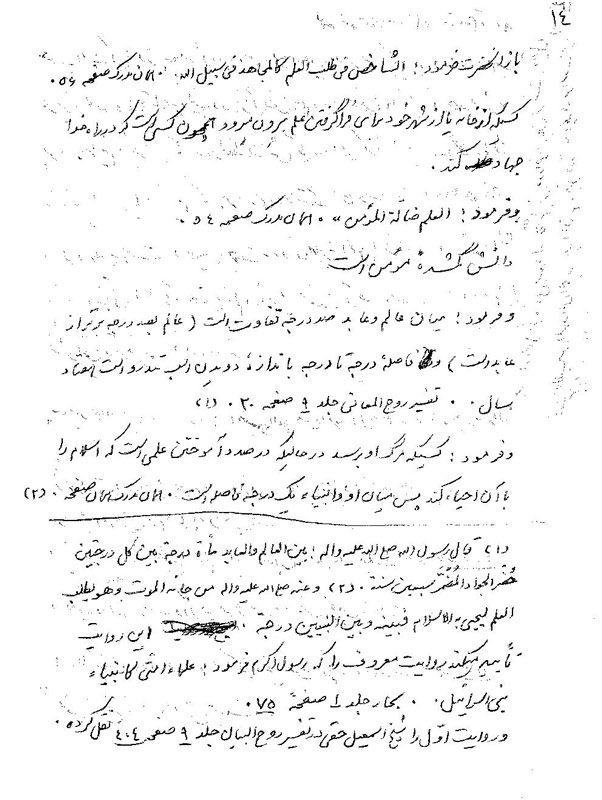 ١٤
باز آنحضرت فرمود : الشاخص فی طلب العلم کالمجاهد فی سبیل الله . همان مدرک صفحه ٥٤ .
کسیکه از خانه یا از شهر خود برای فراگرفتن علم بیرون میرود همچون کسی است که در راه خدا
جهاد کند .
و فرمود : العلم ضالة المؤمن » . همان مدرک صفحه ٥٤ .
دانش گمشدهٔ مؤمن است
و فرمود : میان عالم و عابد صد درجه تفاوت است ( عالم بصد درجه برتر از
عابد است ) و فاصلهٔ درجه تا درجه باندازهٔ دویدن اسب تندرو است هفتاد
سال . . تفسیر روح المعانی جلد ٩ صفحه ٢٠ . (١)
و فرمود : کسیکه مرگ او برسد در حالیکه در صدد آموختن علمی است که اسلام را
با آن احیاء کند پس میان او و انبیاء یک درجه فاصله است . همان مدرک همان صفحه . (٢)
(١) قال رسول الله صلی الله علیه و اله : بین العالم والعابد مأة درجة بین کل درجتین
حُضر الجواد المُضَمَّر سبعین سنة . (٢) و عنه صلی الله علیه و اله من جائه الموت و هو یطلب
العلم لیحیی به الاسلام فبینه و بین النبیین درجة . این روایت
تأیید میکند روایت معروف را که رسول اکرم فرمود : علماء امتی کانبیاء
بنی اسرائیل . . بحار جلد ١ صفحة ٧٥ .
و روایت اوّل را شیخ اسمعیل حقی در تفسیر روح البیان جلد ٩ صفحه ٤٠٤ نقل کرده .